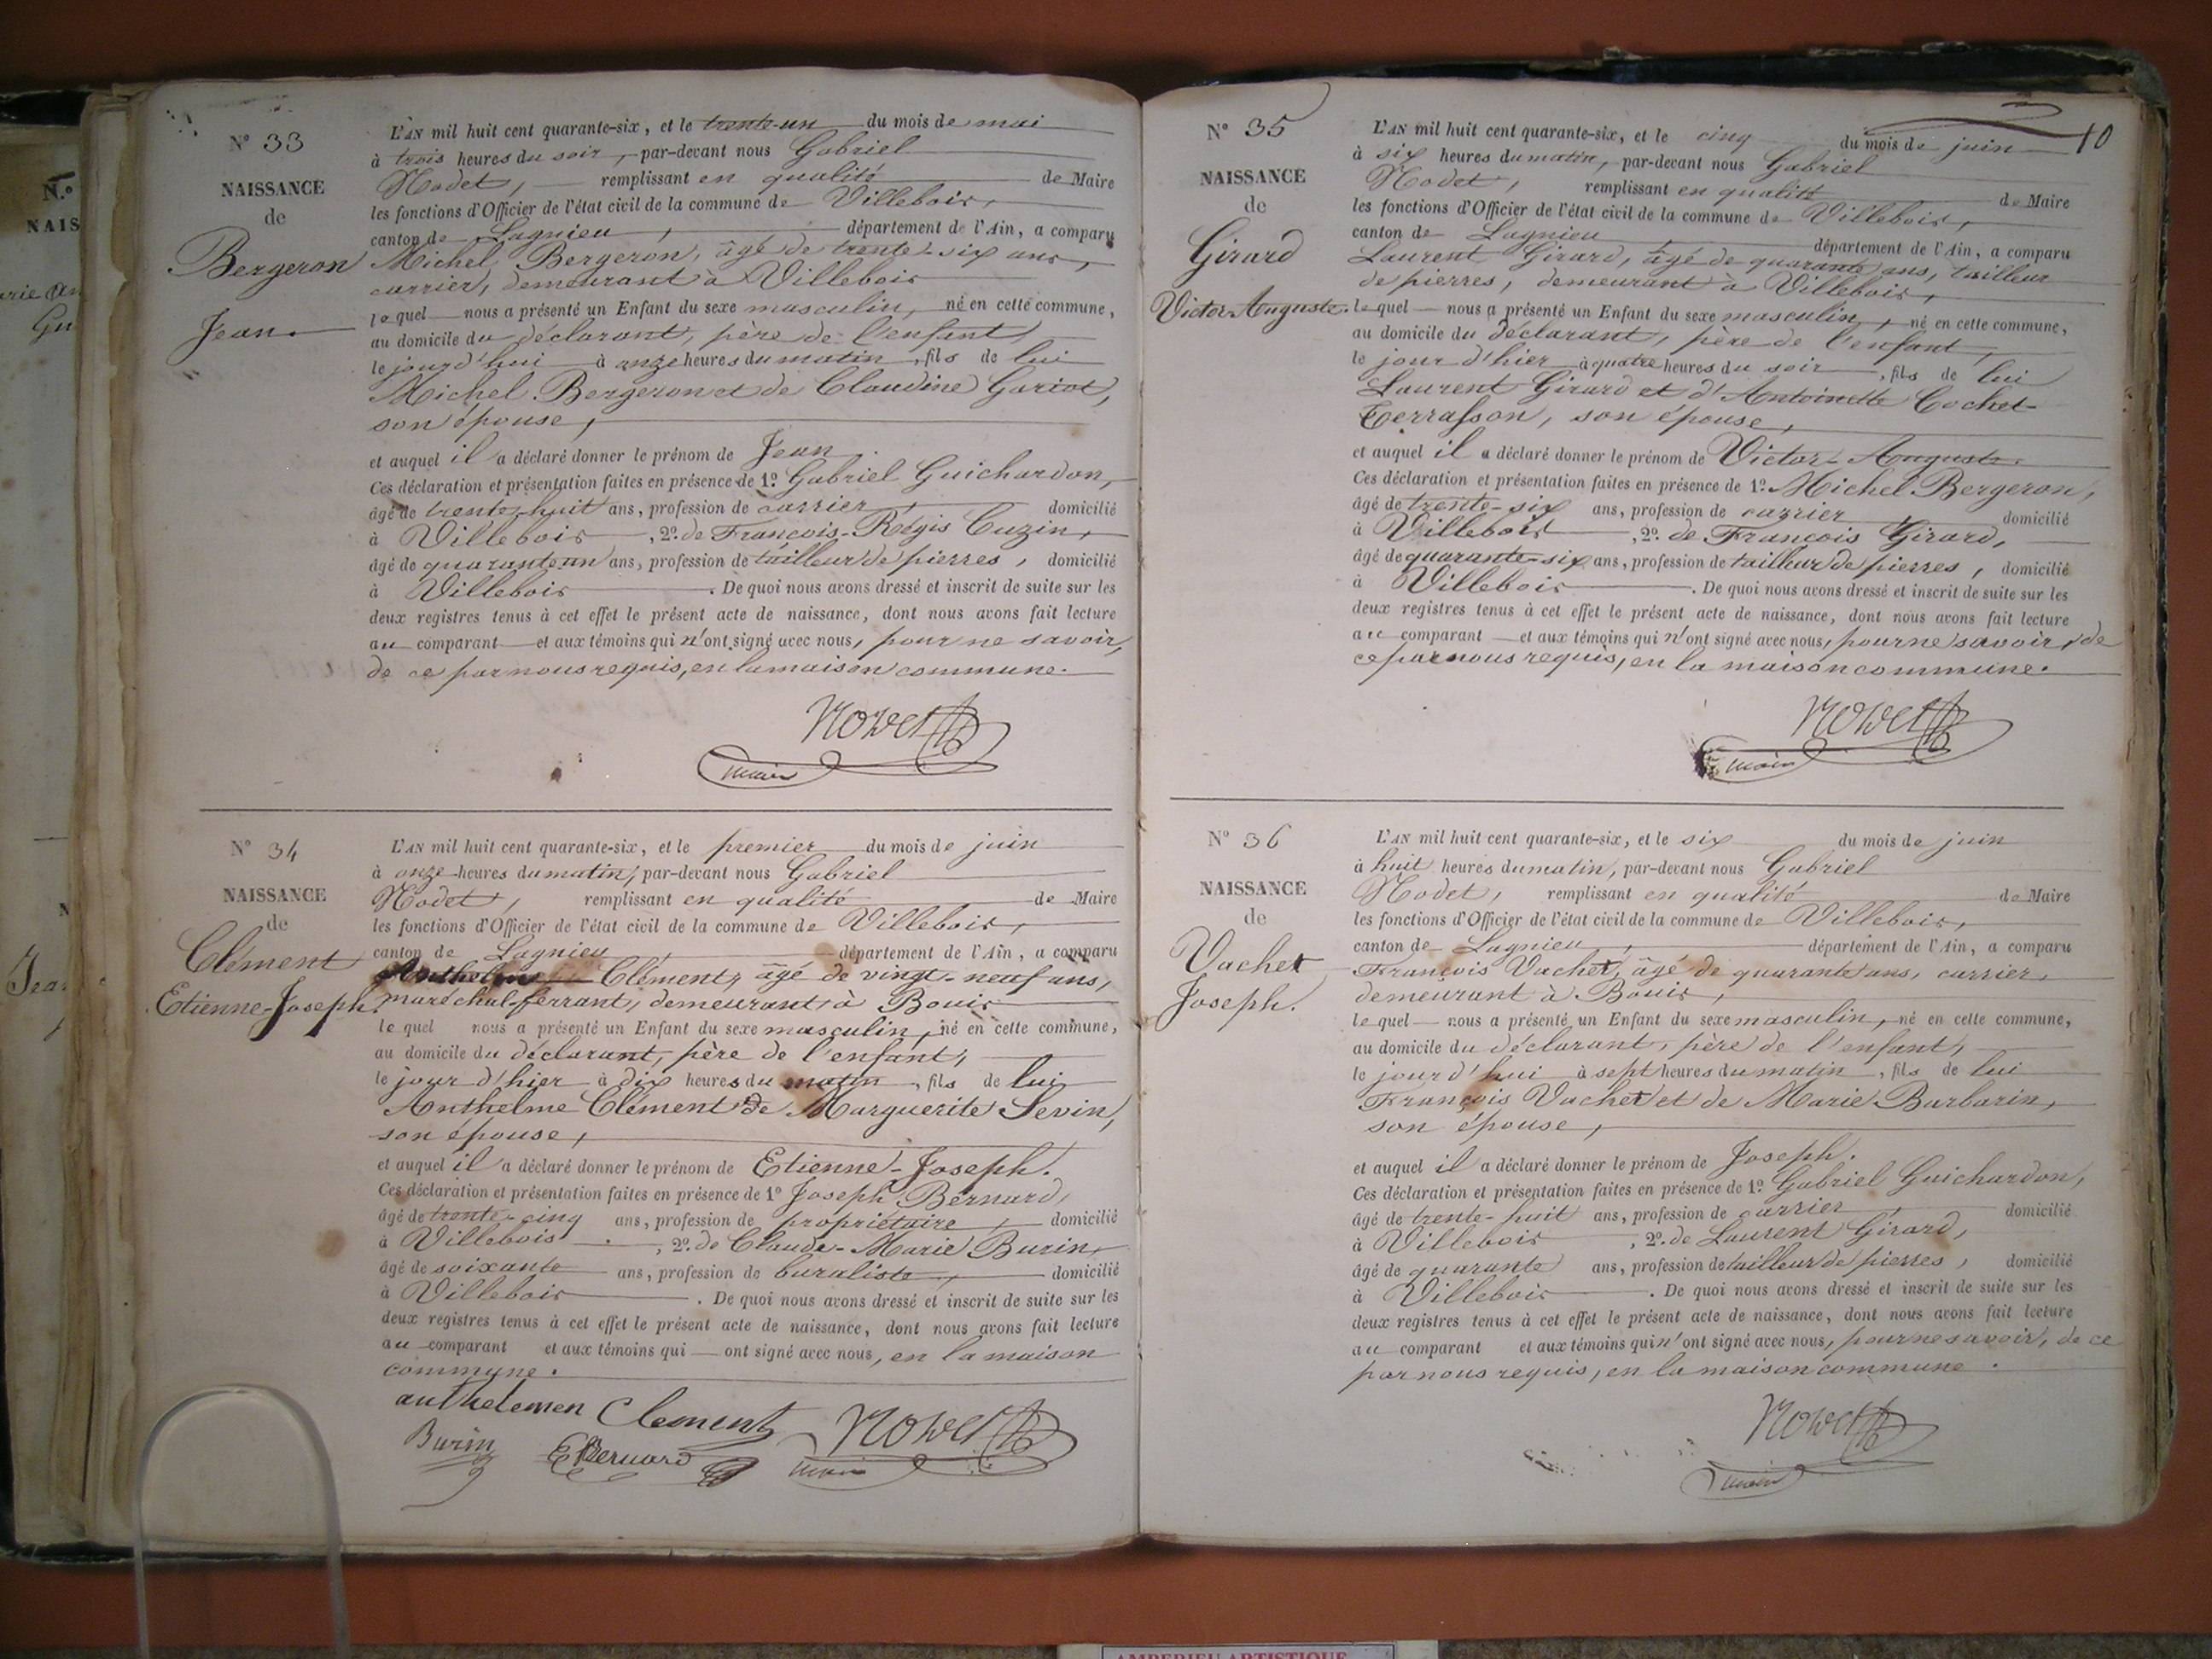 N.º
NAIS
N° 33
NAISSANCE
de
Bergeron
Jean.
L'AN mil huit cent quarante-six, et le trente-un du mois de mai
à trois heures du soir, par-devant nous Gabriel
Nodet, remplissant en qualité de Maire
les fonctions d'Officier de l'état civil de la commune de Villebois,
canton de Lagnieu, département de l'Ain, a comparu
Michel Bergeron, âgé de trente-six ans,
carrier, demeurant à Villebois
lequel nous a présenté un Enfant du sexe masculin, né en cette commune,
au domicile du déclarant, père de l'enfant,
le jourd'hui à onze heures du matin, fils de lui
Michel Bergeron et de Claudine Gariot,
son épouse,
et auquel il a déclaré donner le prénom de Jean.
Ces déclaration et présentation faites en présence de 1º Gabriel Guichardon,
âgé de trente-huit ans, profession de carrier, domicilié
à Villebois, 2º de François-Régis Cuzin,
âgé de quarante un ans, profession de tailleur de pierres, domicilié
à Villebois. De quoi nous avons dressé et inscrit de suite sur les
deux registres tenus à cet effet le présent acte de naissance, dont nous avons fait lecture
au comparant et aux témoins qui n'ont signé avec nous, pour ne savoir,
de ce par nous requis, en la maison commune.
Nodet
maire
N° 34
NAISSANCE
de
Clément
Etienne-Joseph.
L'AN mil huit cent quarante-six, et le premier du mois de juin
à onze heures du matin, par-devant nous Gabriel
Nodet, remplissant en qualité de Maire
les fonctions d'Officier de l'état civil de la commune de Villebois,
canton de Lagnieu département de l'Ain, a comparu
Anthelme Clément, âgé de vingt-neuf ans,
maréchal-ferrant, demeurant à Bouis
lequel nous a présenté un Enfant du sexe masculin, né en cette commune,
au domicile du déclarant, père de l'enfant,
le jour d'hier à dix heures du matin, fils de lui
Anthelme Clément de Marguerite Sevin,
son épouse,
et auquel il a déclaré donner le prénom de Etienne-Joseph.
Ces déclaration et présentation faites en présence de 1º Joseph Bernard,
âgé de trente-cinq ans, profession de propriétaire, domicilié
à Villebois, 2º de Claude-Marie Burin,
âgé de soixante ans, profession de buraliste, domicilié
à Villebois. De quoi nous avons dressé et inscrit de suite sur les
deux registres tenus à cet effet le présent acte de naissance, dont nous avons fait lecture
au comparant et aux témoins qui ont signé avec nous, en la maison
commune.
anthelemen Clement Nodet
Burin Bernard maire
10
N° 35
NAISSANCE
de
Girard
Victor-Auguste.
L'AN mil huit cent quarante-six, et le cinq du mois de juin
à six heures du matin, par-devant nous Gabriel
Nodet, remplissant en qualité de Maire
les fonctions d'Officier de l'état civil de la commune de Villebois,
canton de Lagnieu département de l'Ain, a comparu
Laurent Girard, âgé de quarante ans, tailleur
de pierres, demeurant à Villebois,
lequel nous a présenté un Enfant du sexe masculin, né en cette commune,
au domicile du déclarant, père de l'enfant,
le jour d'hier à quatre heures du soir, fils de lui
Laurent Girard et d'Antoinette Cochet-
Terrasson, son épouse,
et auquel il a déclaré donner le prénom de Victor-Auguste.
Ces déclaration et présentation faites en présence de 1º Michel Bergeron,
âgé de trente-six ans, profession de carrier, domicilié
à Villebois, 2º de François Girard,
âgé de quarante-six ans, profession de tailleur de pierres, domicilié
à Villebois. De quoi nous avons dressé et inscrit de suite sur les
deux registres tenus à cet effet le présent acte de naissance, dont nous avons fait lecture
au comparant et aux témoins qui n'ont signé avec nous, pour ne savoir, de
ce par nous requis, en la maison commune.
Nodet
maire
N° 36
NAISSANCE
de
Vachet
Joseph.
L'AN mil huit cent quarante-six, et le six du mois de juin
à huit heures du matin, par-devant nous Gabriel
Nodet, remplissant en qualité de Maire
les fonctions d'Officier de l'état civil de la commune de Villebois,
canton de Lagnieu, département de l'Ain, a comparu
François Vachet, âgé de quarante ans, carrier,
demeurant à Bouis,
lequel nous a présenté un Enfant du sexe masculin, né en cette commune,
au domicile du déclarant, père de l'enfant,
le jourd'hui à sept heures du matin, fils de lui
François Vachet et de Marie Barbarin,
son épouse,
et auquel il a déclaré donner le prénom de Joseph.
Ces déclaration et présentation faites en présence de 1º Gabriel Guichardon,
âgé de trente-huit ans, profession de carrier, domicilié
à Villebois, 2º de Laurent Girard,
âgé de quarante ans, profession de tailleur de pierres, domicilié
à Villebois. De quoi nous avons dressé et inscrit de suite sur les
deux registres tenus à cet effet le présent acte de naissance, dont nous avons fait lecture
au comparant et aux témoins qui n'ont signé avec nous, pour ne savoir, de ce
par nous requis, en la maison commune.
Nodet
maire
AMBERIEU ARTISTIQUE